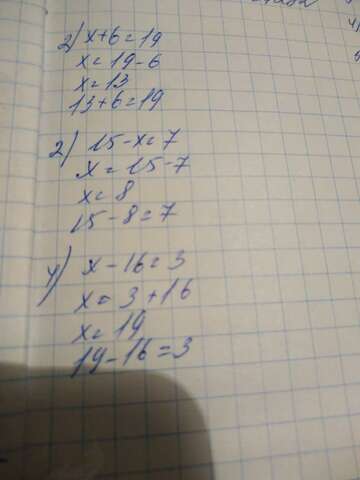 2) x+6=19
x=19-6
x=13
13+6=19
2) 15-x=7
x=15-7
x=8
15-8=7
4) x-16=3
x=3+16
x=19
19-16=3
4)